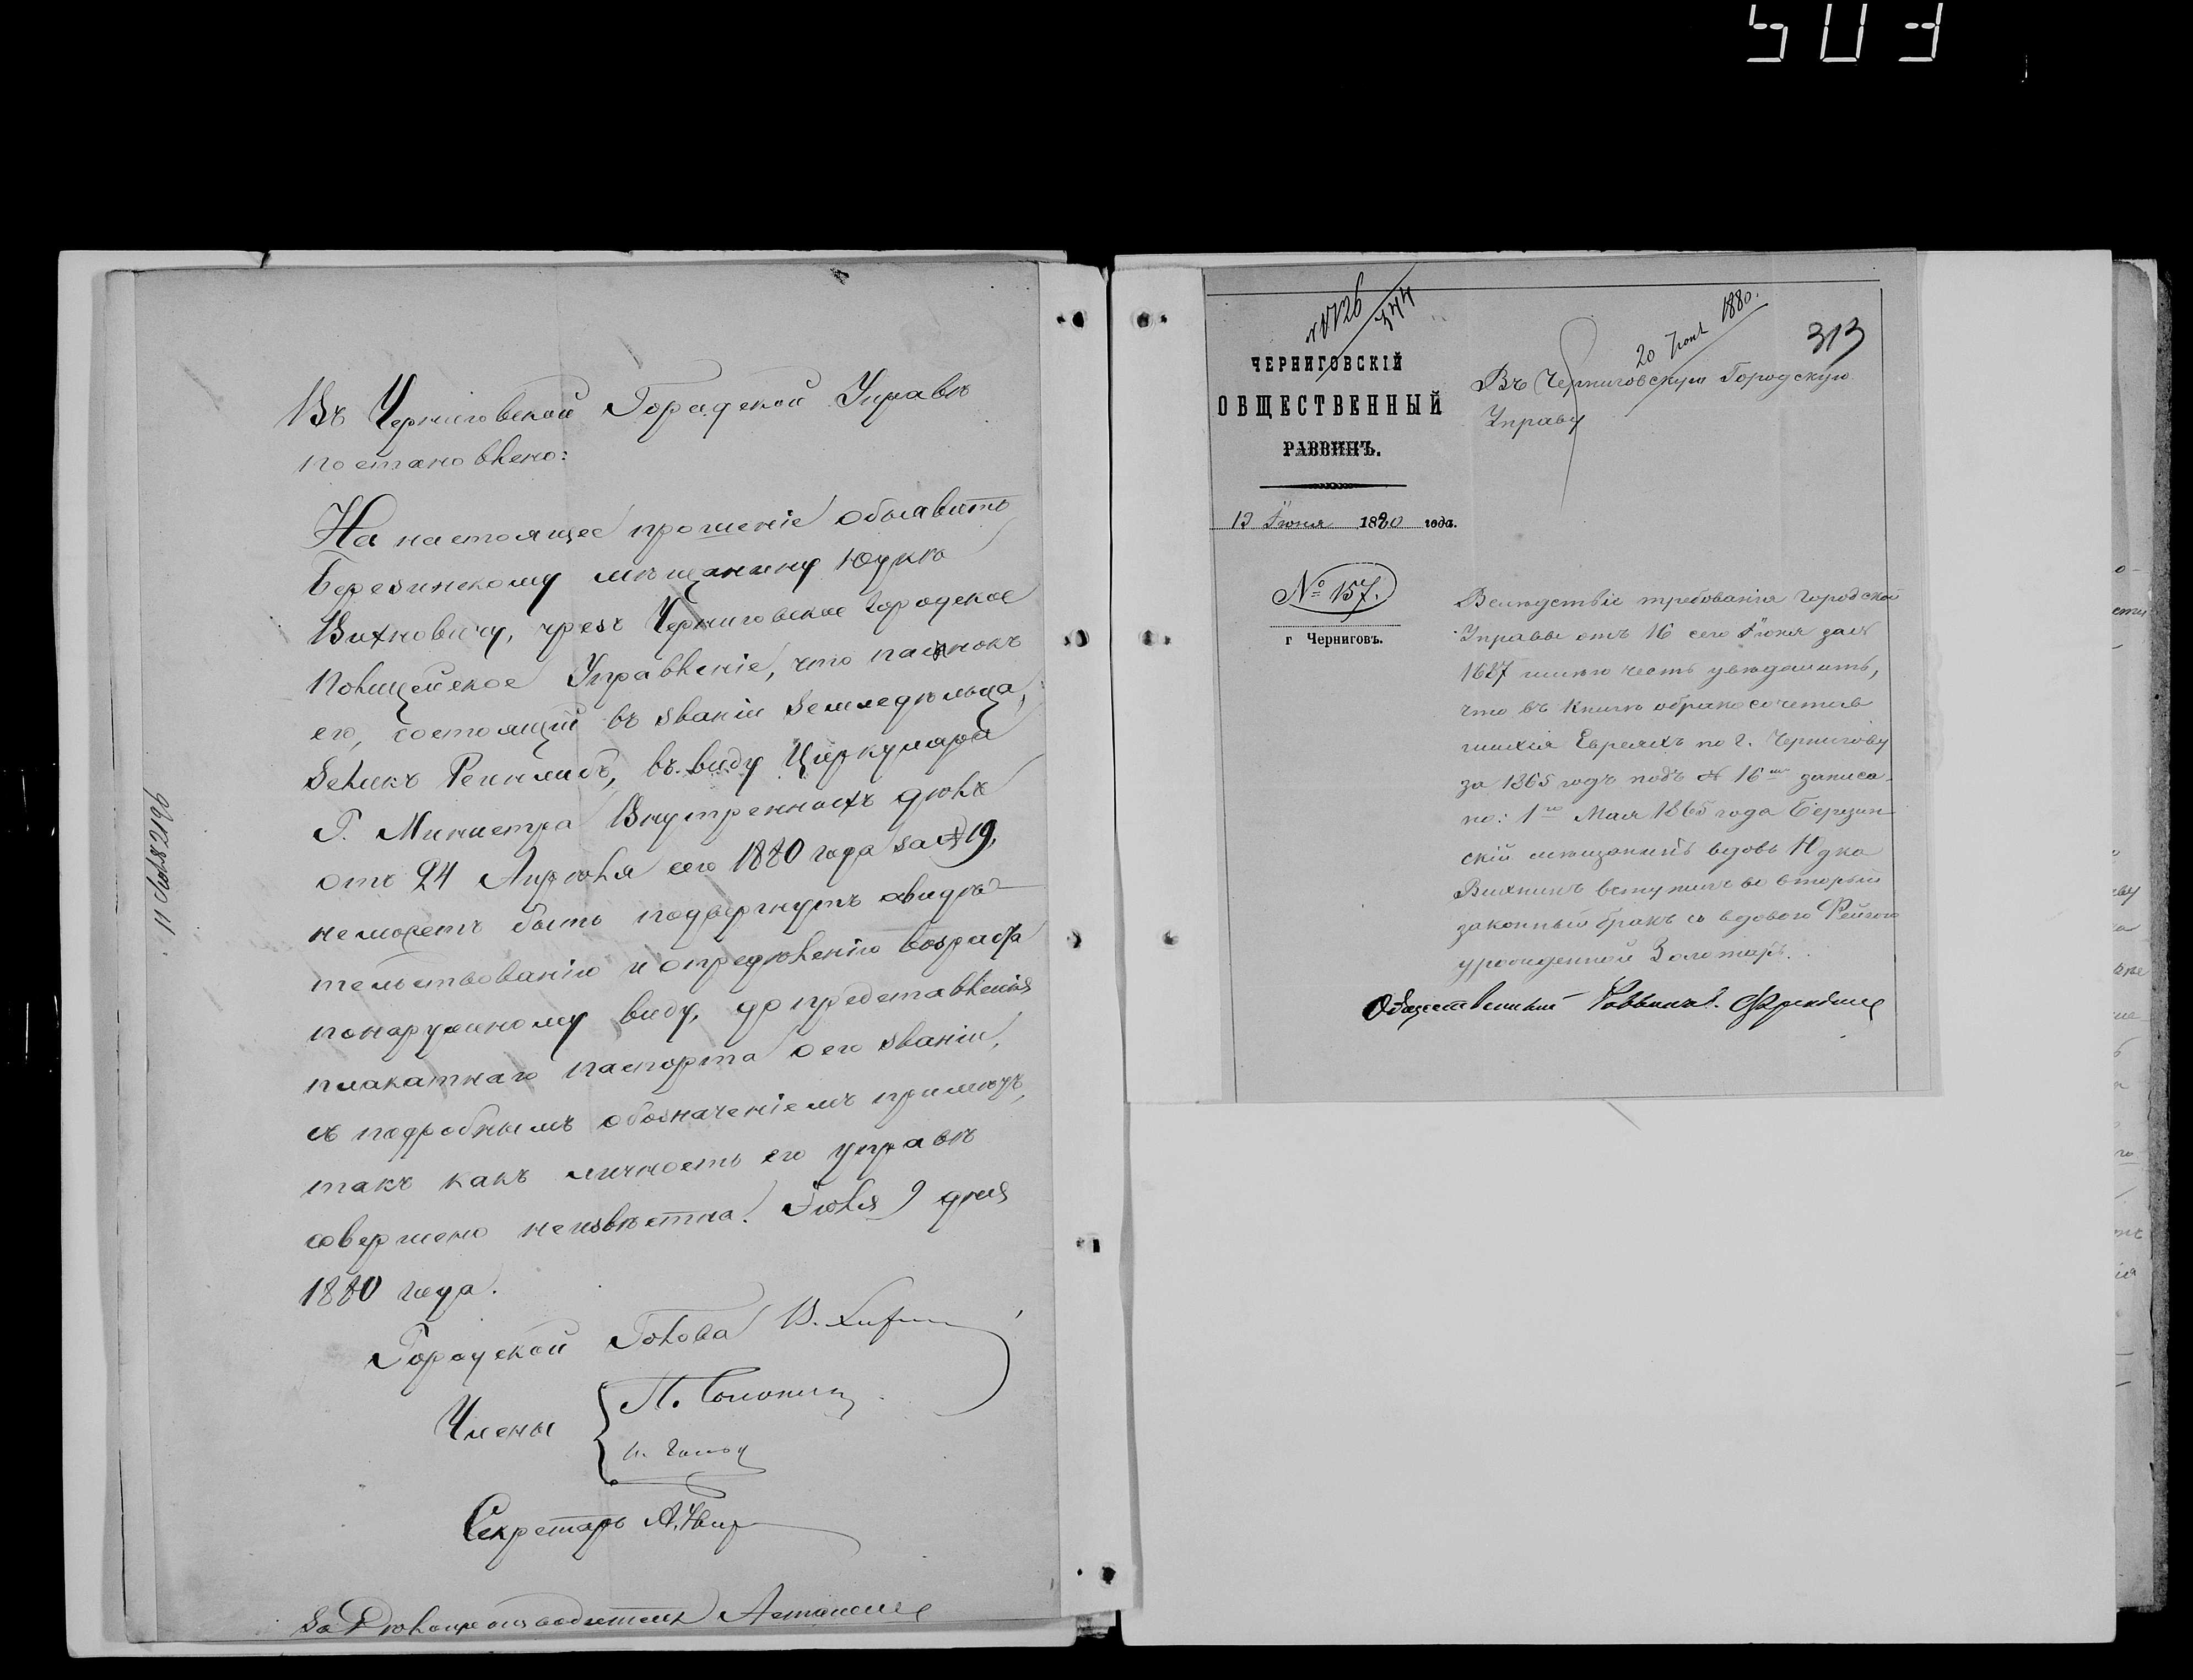 503
Въ Черниговской Городской Управѣ
постановлено:
На настоящее прошеніе объявить
Березинскому мѣщанину Юдкѣ
Вихновичу, чрезъ Черниговское Городское
Полицейское Управленіе, что пасынокъ
его, состоящій въ званіи земледѣльца,
Зеликъ въ виду Циркуляра
Г. Министра Внутреннихъ дѣлъ
отъ 24 Апрѣля сего 1880 года за № 19,
неможетъ быть подвергнутъ освидѣ-
тельствованію и опредѣленію возраста
понаружному виду, до представленія
плакатнаго паспорта о его званіи,
съ подробнымъ обозначеніемъ примѣтъ,
такъ какъ личность его управѣ
совершено неизвѣстна. Іюля 9 дня
1880 года.
Городской Голова В.
Члены
П.
Секретарь А.
За Дѣлопроизводителя
11 Іюля 8 2196
344
ЧЕРНИГОВСКІЙ
ОБЩЕСТВЕННЫЙ
РАВВИНЪ.
19 Іюня 1880 года.
№ 157.
г Черниговъ.
20 Іюня 1880.
313
Въ Черниговскую Городскую
Управу
Вслѣдствіе требованія Городской
Управы отъ 16 сего Іюня за №
1687 имѣю честь увѣдомить,
что въ книгѣ обракосочетав
шихся Евреяхъ по г. Чернигову
за 1865 годъ подъ № 16 записа-
но: 1го Мая 1865 года Березин
скій мѣщанинъ вдовъ Юдка
Вихнинъ вступилъ во вторый
законный бракъ со вдовою Фейгою
урожденной Золотарь.
Общественный Раввинъ